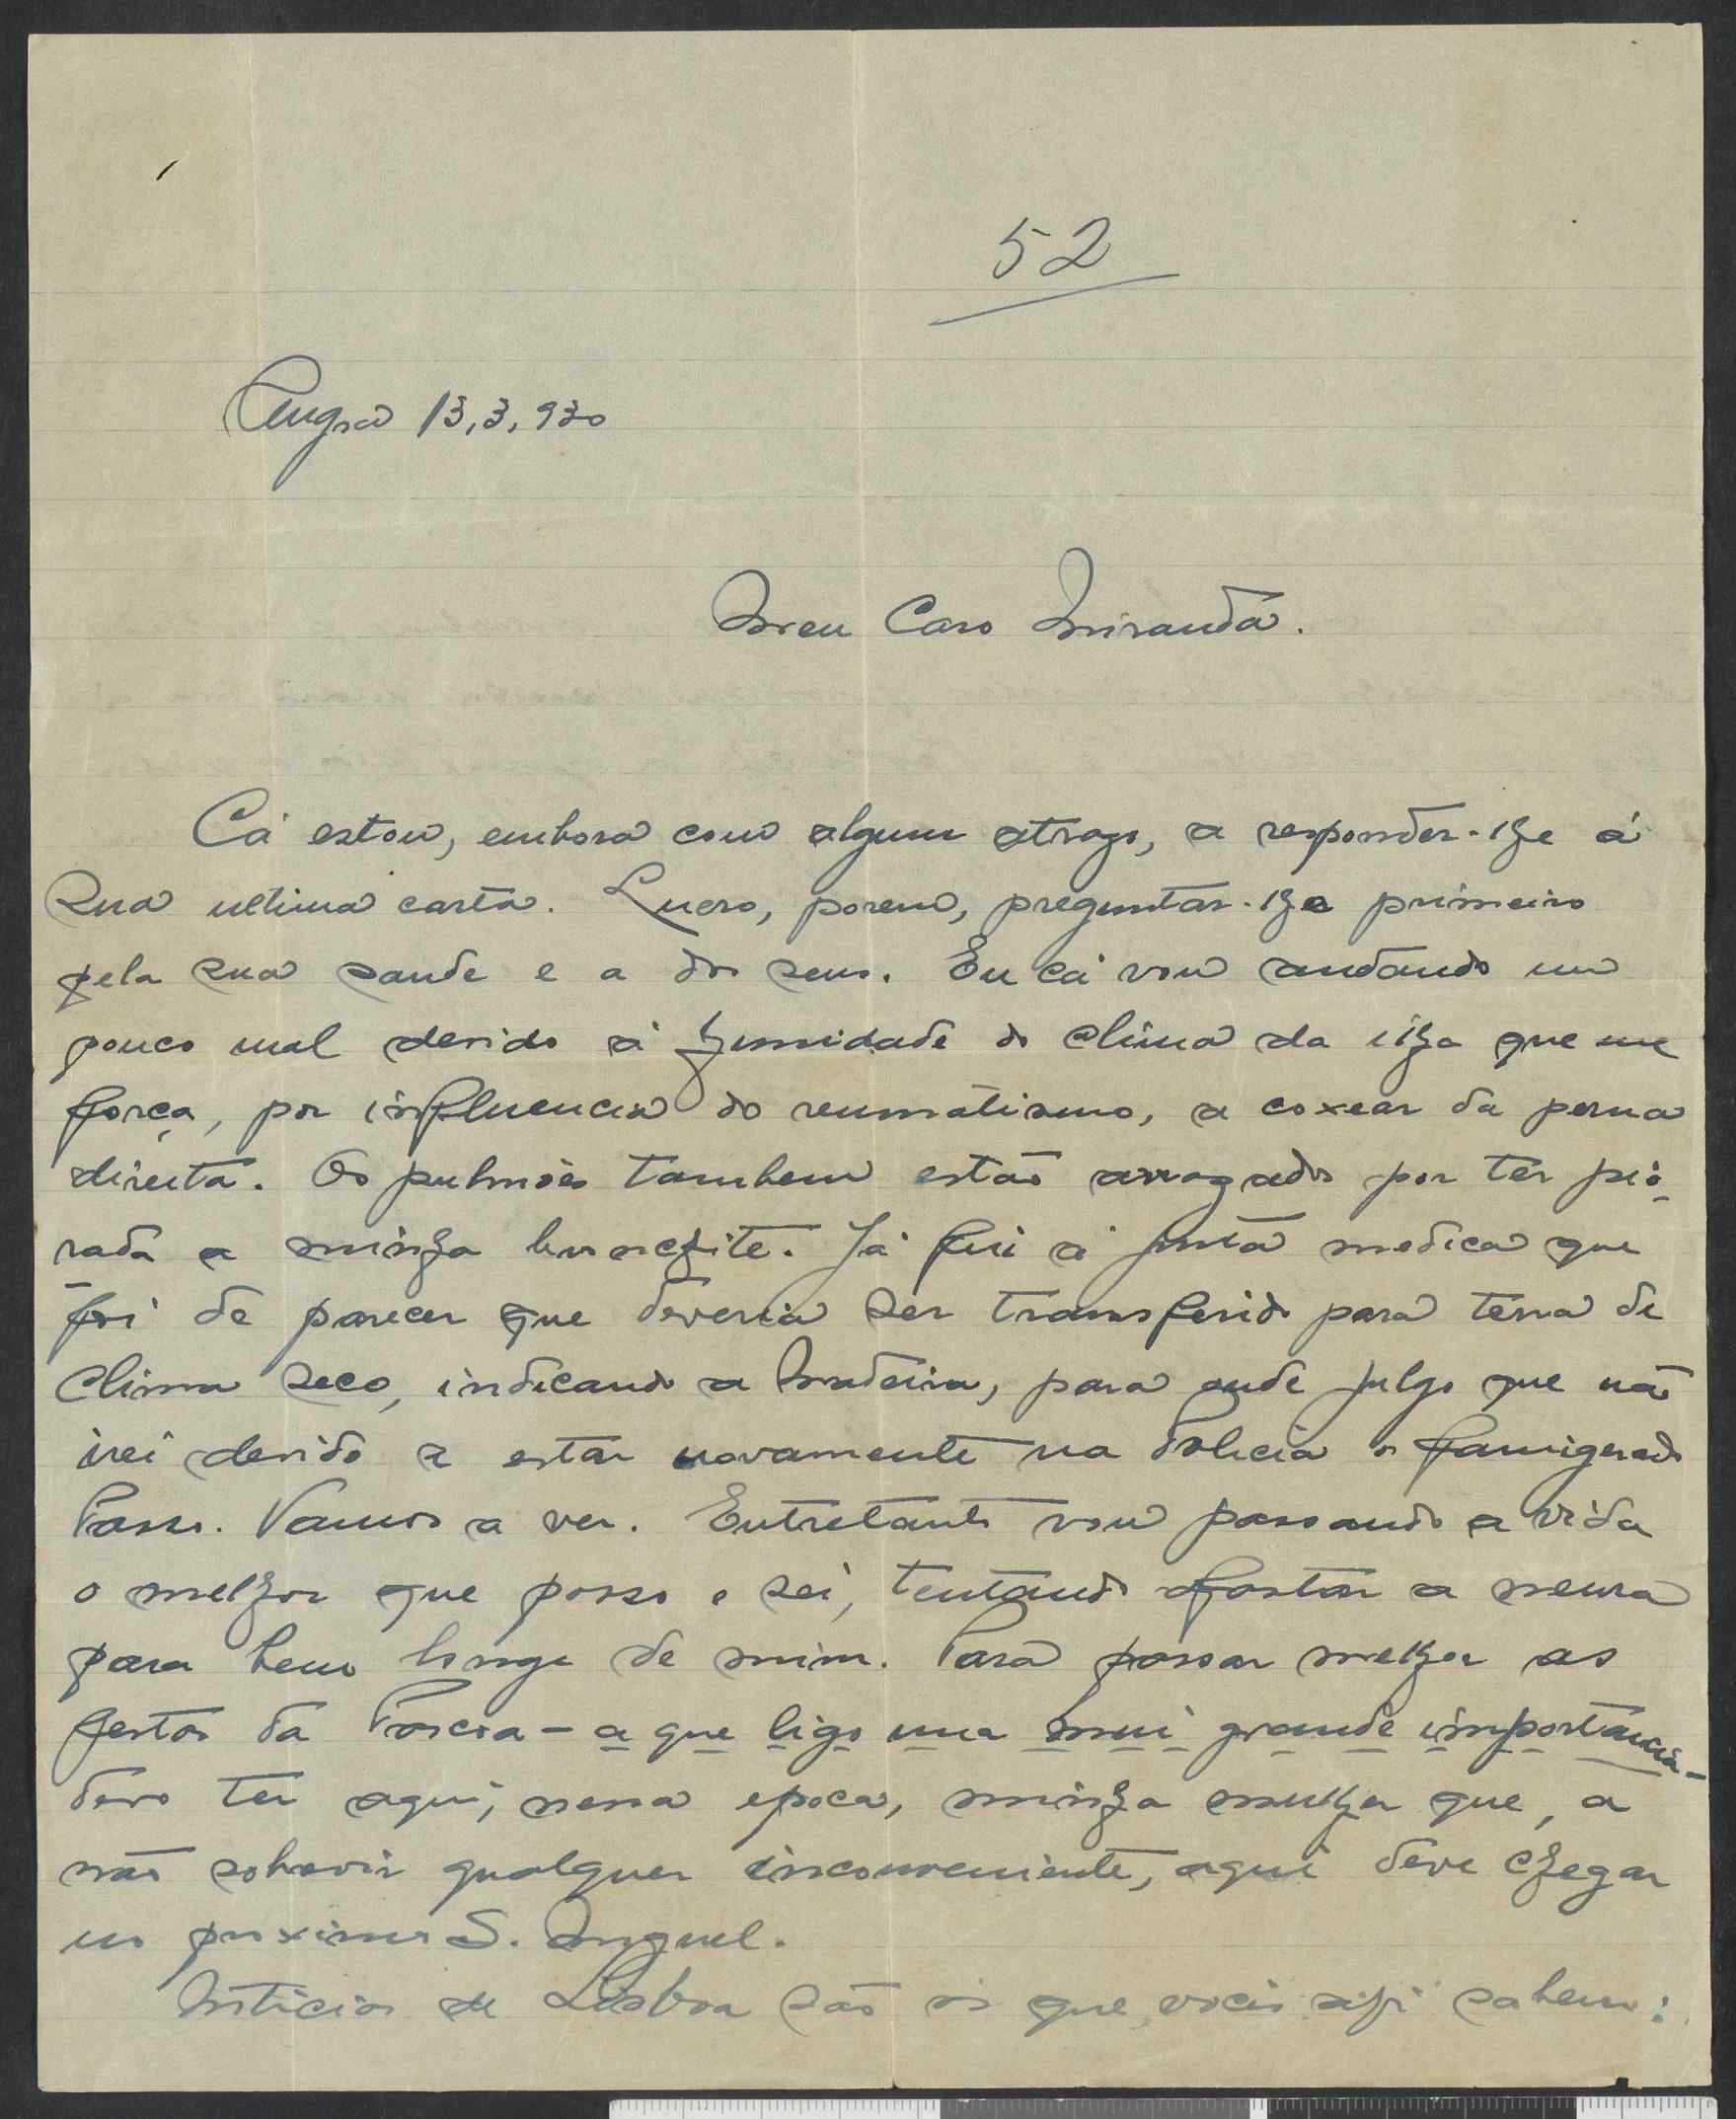 52
Angra 13,3,930
Meu Caro Miranda.
Cá estou, embora com algum atrazo, a responder-lhe á
sua ultima carta. Quero, porem, preguntar-lhe primeiro
pela sua saude e a dos seus. Eu cá vou andando um
pouco mal devido á humidade do clima da ilha que me
força, por influencia do reumatismo, a coxear da perna
direita. Os pulmões tambem estão arrazados por ter pio-
rada a minha bronchite. Já fui á junta medica que
foi de parecer que deveria ser transferido para terra de
clima seco, indicando a Madeira, para onde julgo que não
irei devido a estar novamente na Policia o famigerado
Passo. Vamos a ver. Entretanto vou passando a vida
o melhor que posso e sei, tentando afastar a neura
para bem longe de mim. Para passar melhor as
festas da Pascoa - a que ligo uma mui grande importancia -
devo ter aqui, nessa epoca, minha mulher que, a
não sobrevir qualquer inconveniente, aqui deve chegar
no proximo S. Miguel.
Noticias de Lisboa são as que vocês aí sabem: